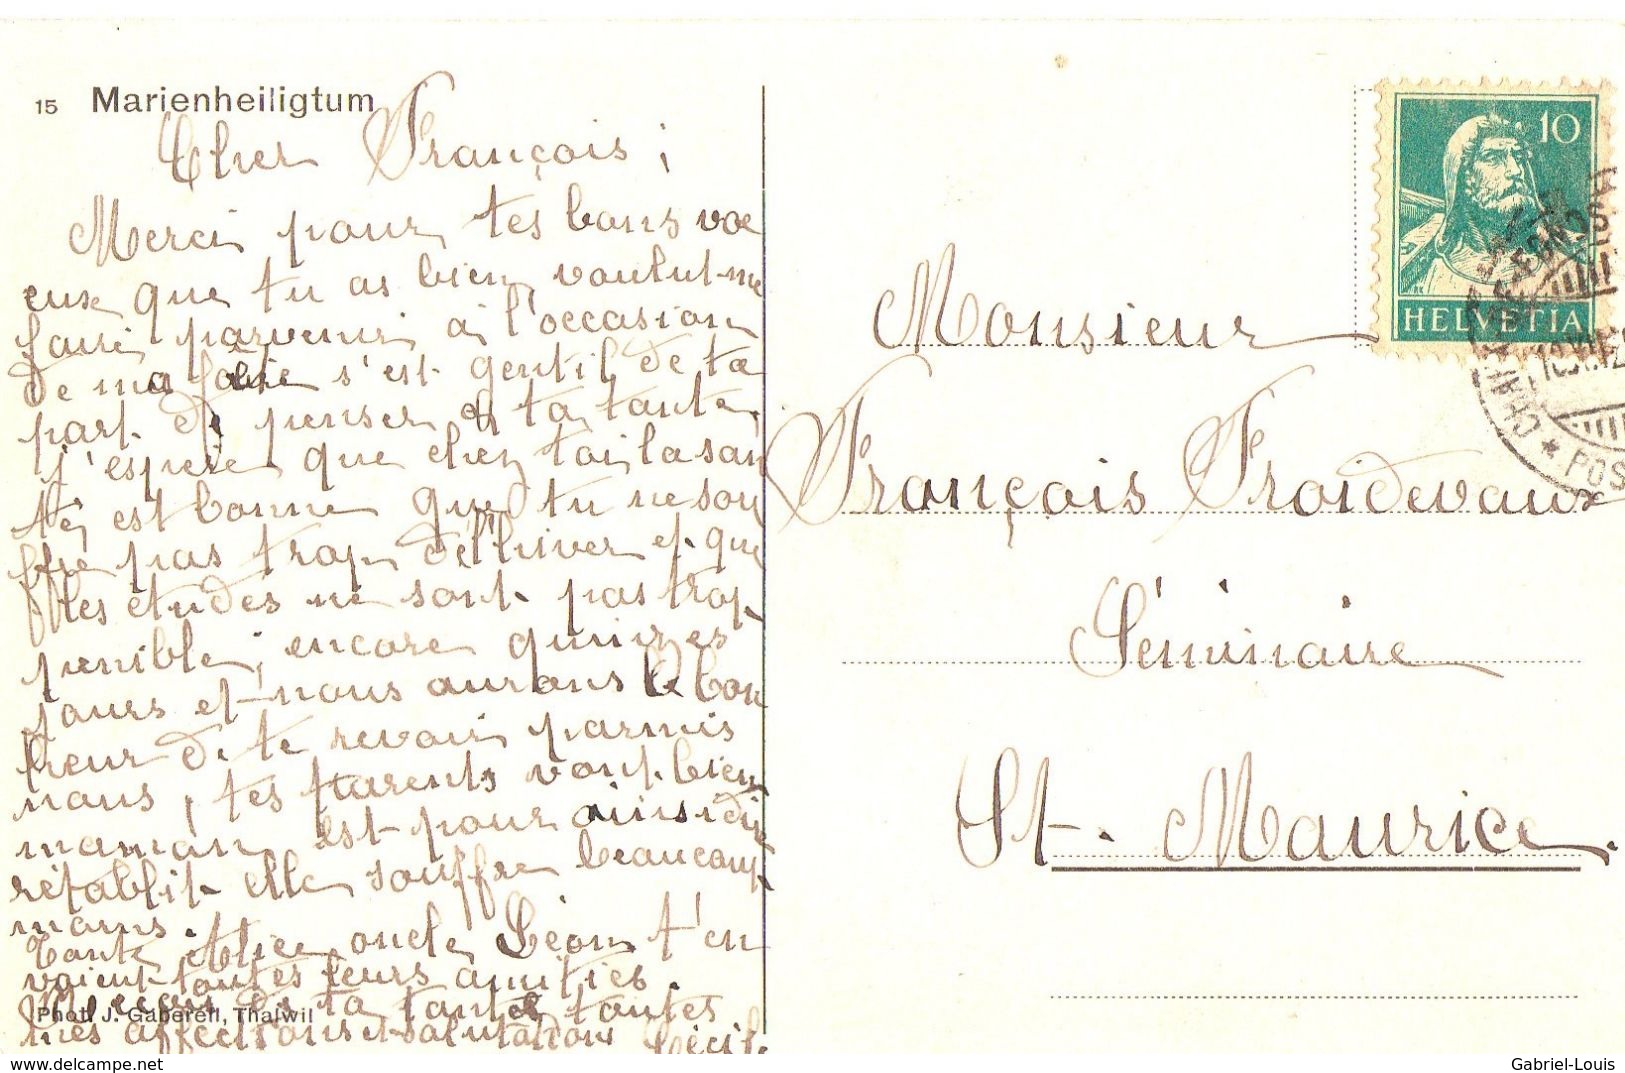 15 Marienheiligtum
Cher François ;
Merci pour tes bons voe
eux que tu as bien voulut me
faire parvenir à l'occasion
de ma fête s'est gentil de ta
part de penser à ta tante,
j'espère que chez toi la san
té, est bonne que tu ne sou
ffre pas trop de l'hiver et que
les etudes ne sont pas trop
penible, encore quinzes
jours et nous aurons le bon
heur de te revoir parmis
nous, tes parents vont bien
maman est pour ainsi dire
rétablit elle souffre beaucoup
moins.
Tante Alice, oncle Léon t'en
voient toutes leurs amitiés.
Reçois de ta tante toutes
mes affections et salutations Cécile
Phot. J. Gaberell, Thalwil
10
HELVETIA
POS
Monsieur
François Froidevaux
Séminaire
St. Maurice.
www.delcampe.net
Gabriel-Louis